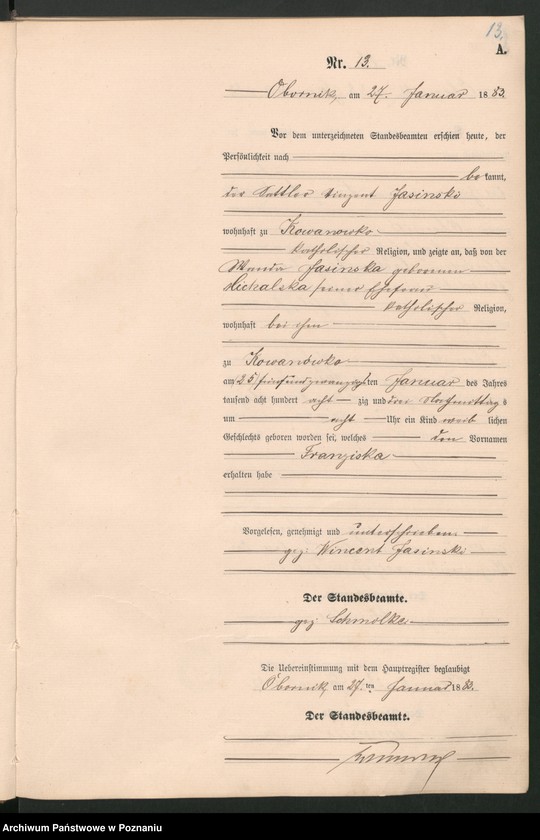 13.
A.
Nr. 13.
Obornik, am 27. Januar 1883.
Vor dem unterzeichneten Standesbeamten erschien heute, der
Persönlichkeit nach
be kannt,
der Sattler Vinzent Jasinski
wohnhaft zu Kowanowko
katholischer Religion, und zeigte an, daß von der
Wanda Jasinska geborenen
Michalska seiner Ehefrau
katholischer Religion,
wohnhaft bei ihm
zu Kowanowko
am 25 fünfundzwanzigsten Januar des Jahres
tausend acht hundert acht zig und drei Nachmittags
um acht Uhr ein Kind weib lichen
Geschlechts geboren worden sei, welches den Vornamen
Franziska
erhalten habe
Vorgelesen, genehmigt und unterschrieben
gez. Wincent Jasinski
Der Standesbeamte.
gez. Schmolke
Die Uebereinstimmung mit dem Hauptregister beglaubigt
Obornik, am 27. ten Januar 1883.
Der Standesbeamte.
Archiwum Państwowe w Poznaniu